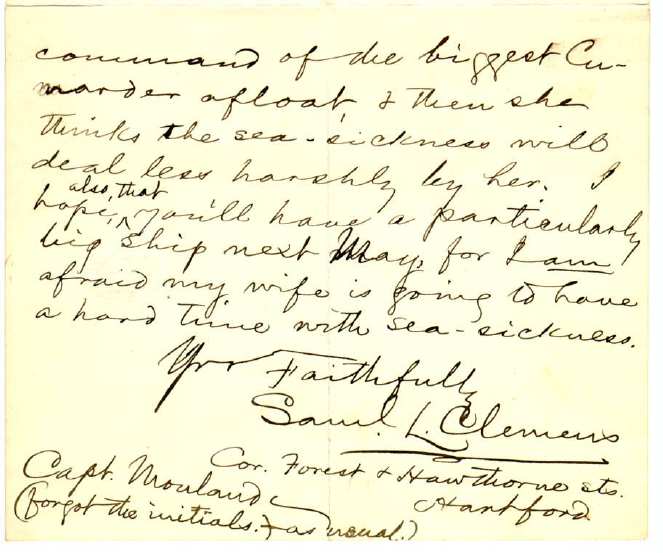 command of the biggest Cu-
narder afloat, & then she
thinks the sea-sickness will
deal less harshly by her. I
hope, also, that you'll have a particularly
big ship next May, for I am
afraid my wife is going to have
a hard time with sea-sickness.
Yrs Faithfully
Saml. L. Clemens
Cor. Forest & Hawthorne sts.
Hartford
Capt. Mouland
(forgot the initials.—as usual.)